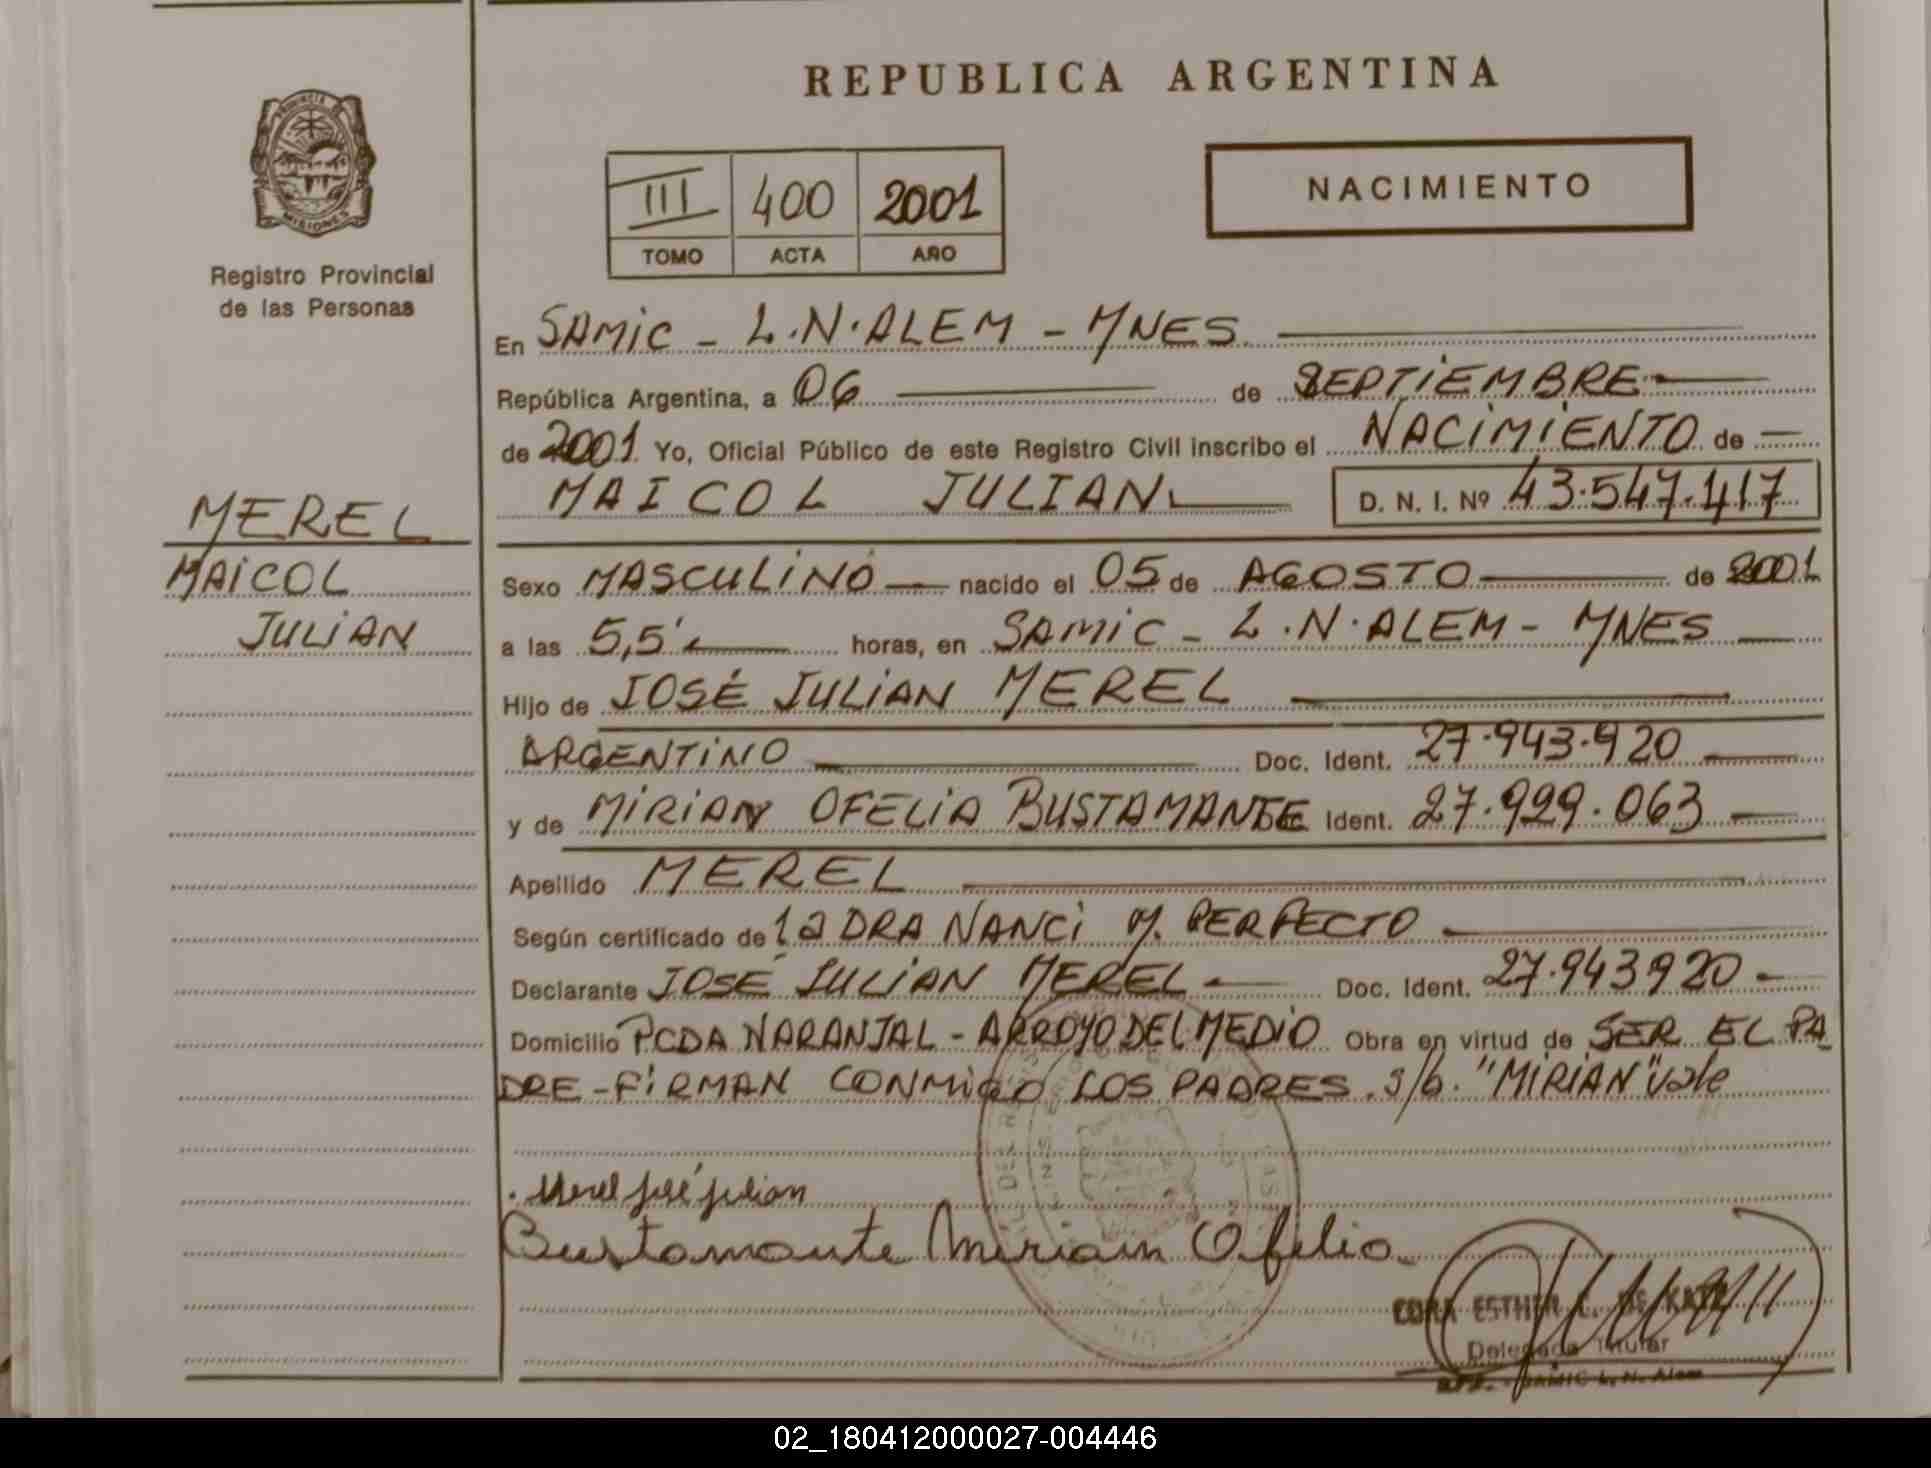 REPUBLICA ARGENTINA
PROVINCIA DE
MISIONES
Registro Provincial
de las Personas
III 400 2001
TOMO ACTA AÑO
NACIMIENTO
En SAMIC - L.N.ALEM - MNES
República Argentina, a 06 de SEPTIEMBRE
de 2001 Yo, Oficial Público de este Registro Civil inscribo el NACIMIENTO de
MAICOL JULIAN D. N. I. Nº 43.547.417
MEREL
MAICOL
JULIAN
Sexo MASCULINO nacido el 05 de AGOSTO de 2001
a las 5,5' horas, en SAMIC - L.N.ALEM - MNES
Hijo de JOSÉ JULIAN MEREL
ARGENTINO Doc. Ident. 27.943.920
y de MIRIAN OFELIA BUSTAMANTE Ident. 27.929.063
Apellido MEREL
Según certificado de la DRA NANCI M. PERFECTO
Declarante JOSÉ JULIAN MEREL Doc. Ident. 27.943920
Domicilio PCDA NARANJAL - ARROYO DEL MEDIO Obra en virtud de SER EL PA
DRE - FIRMAN CONMIGO LOS PADRES. S/b. "MIRIAN" vale
Merel josé julian
Bustamante Miriam Ofelia
CORA ESTHER C. DE KATZ
Delegada Titular
SAMIC L. N. Alem
02_180412000027-004446